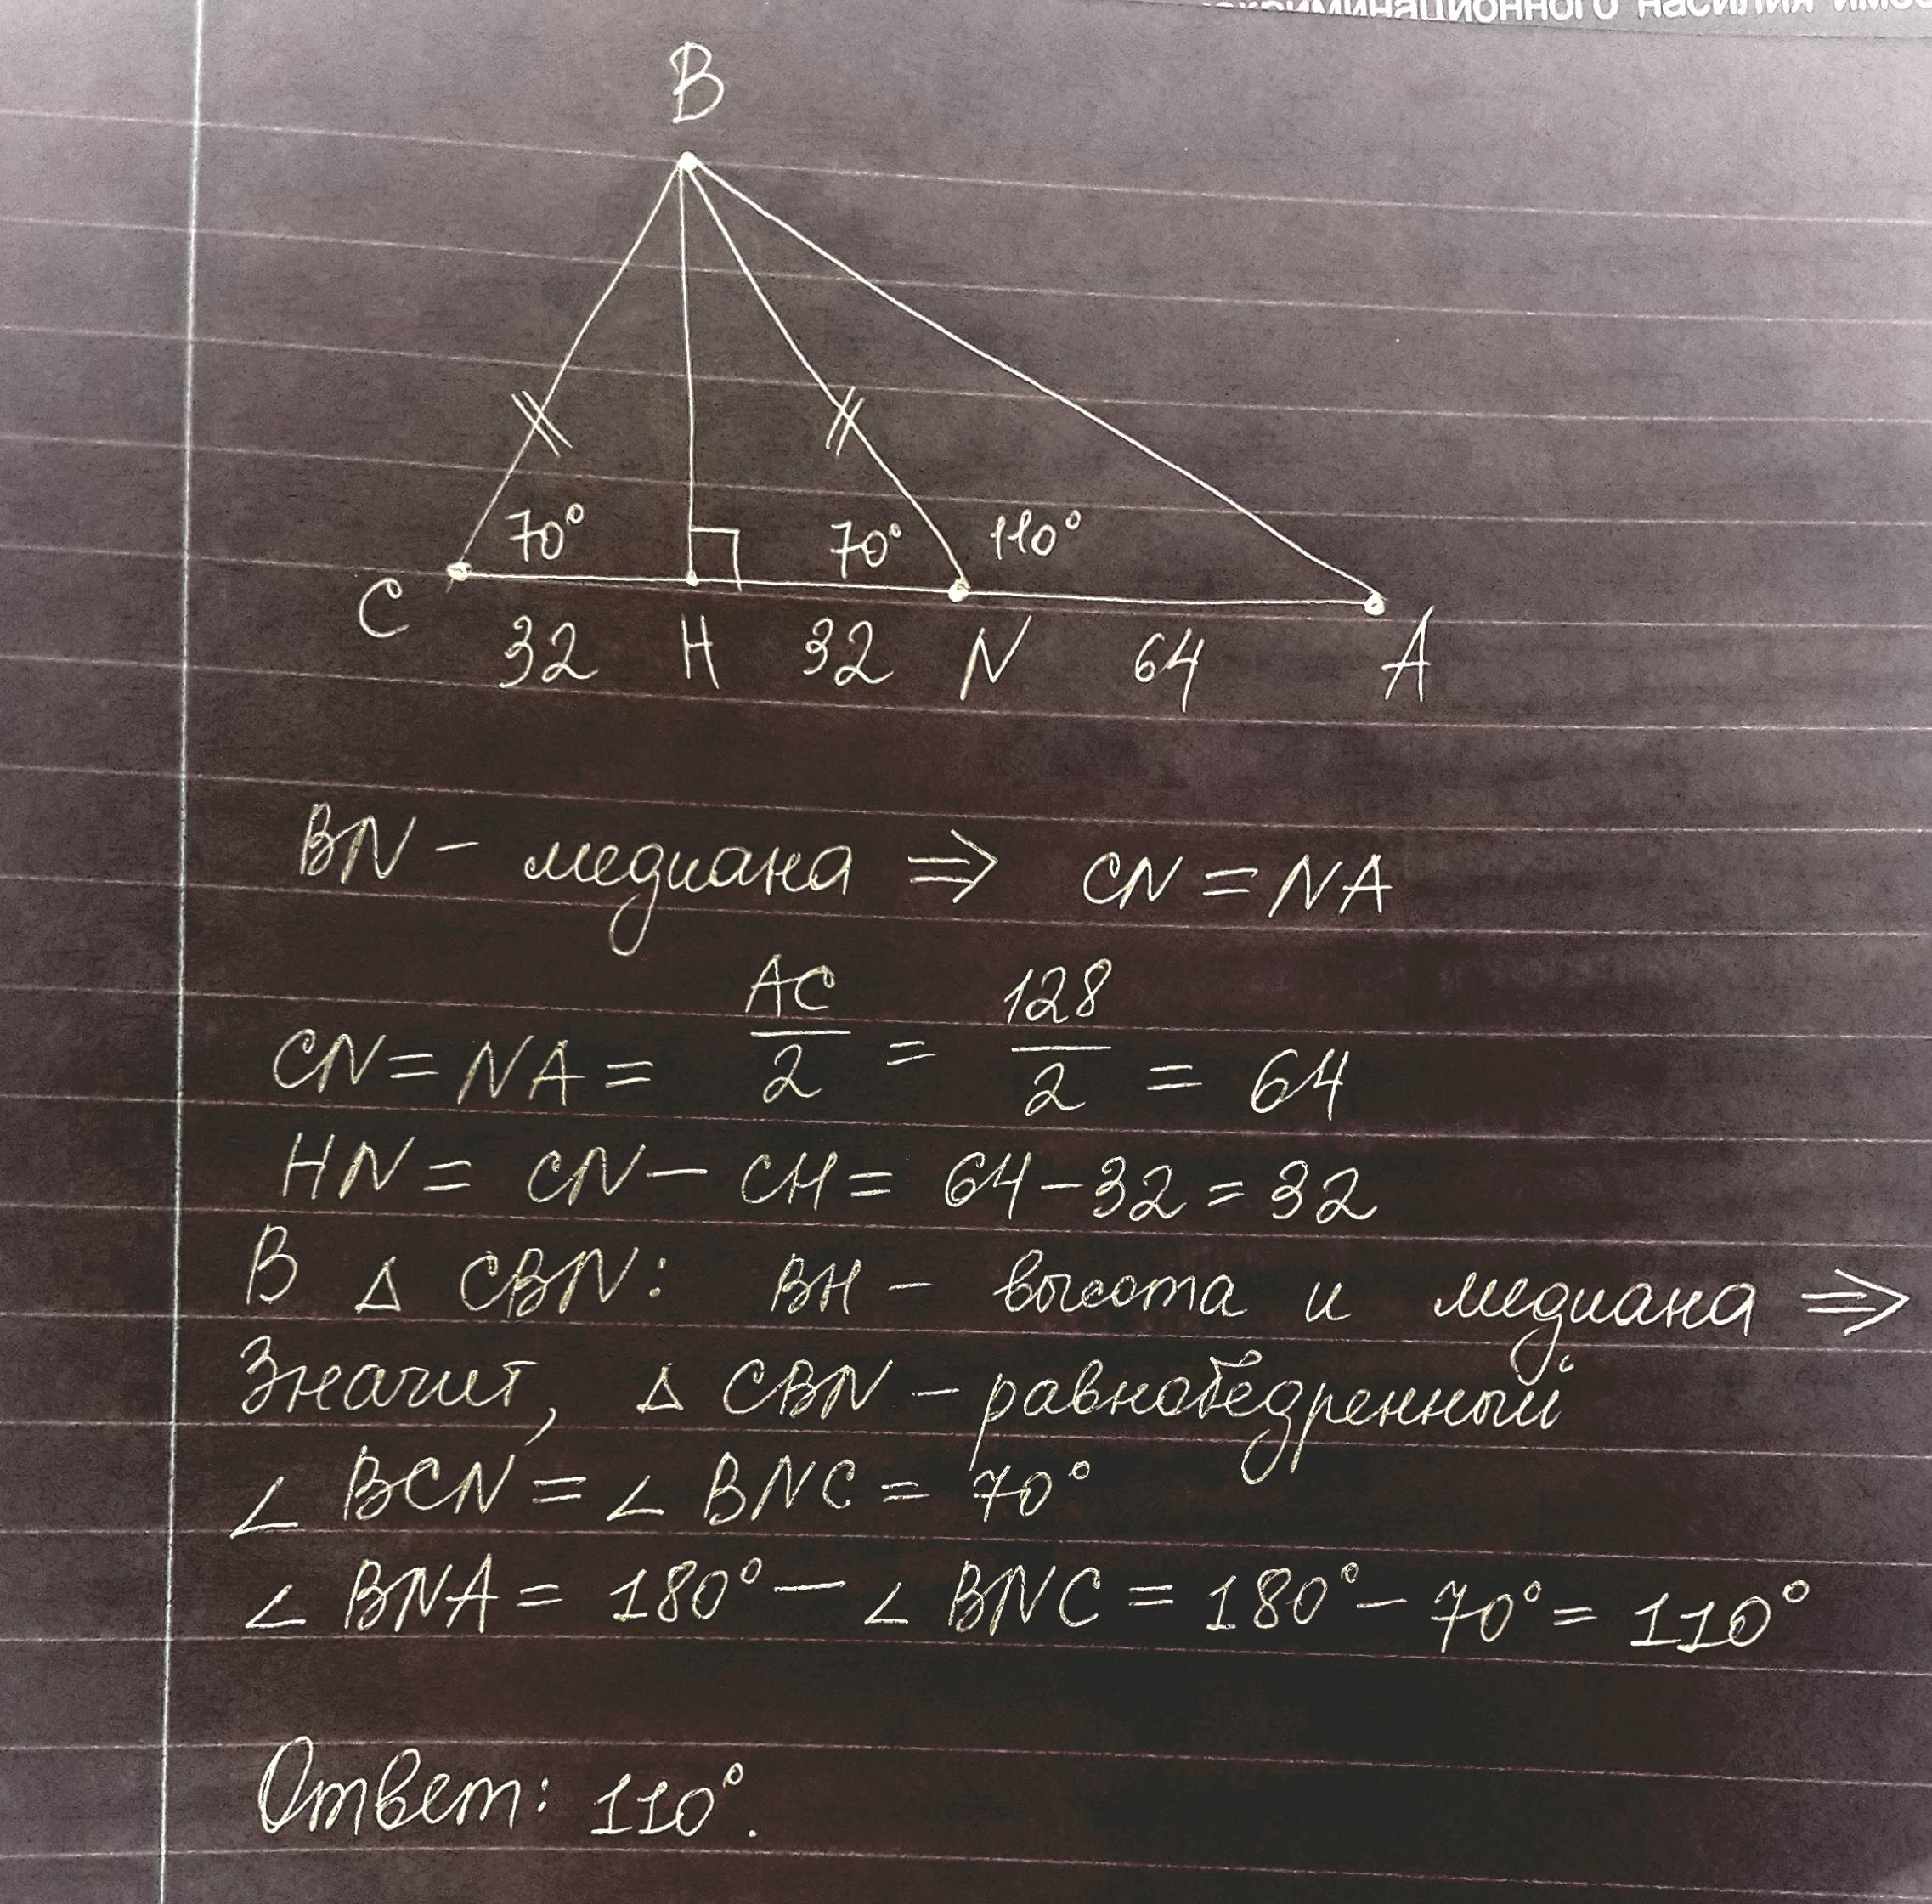 криминационного насилия име
B
70° 70° 110°
C 32 H 32 N 64 A
BN - медиана ⇒ CN = NA
CN = NA = AC/2 = 128/2 = 64
HN = CN - CH = 64 - 32 = 32
В △ CBN: BH - высота и медиана ⇒
Значит, △ CBN - равнобедренный
∠ BCN = ∠ BNC = 70°
∠ BNA = 180° - ∠ BNC = 180° - 70° = 110°
Ответ: 110°.